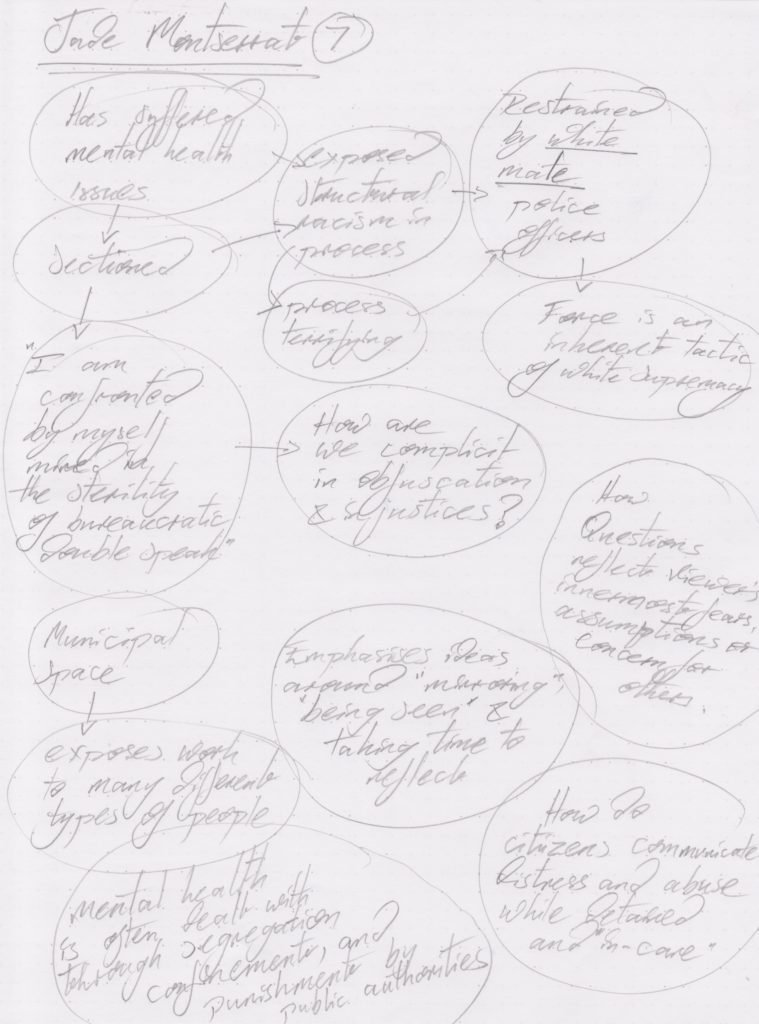 Jade Montserrat 7
Has suffered
mental health
issues
Sectioned
exposed
structural
racism in
process
process
terrifying
Restrained
by white
male
police
officers
Force is an
inherent tactic
of white supremacy
"I am
confronted
by myself
mired in
the sterility
of bureaucratic
double speak"
How are
we complicit
in obfuscation
& injustices?
How
Questions
reflect viewer's
innermost fears,
assumptions or
concern for
others.
Municipal
Space
exposes work
to many different
types of people
Emphasises ideas
around "mirroring",
"being seen" &
taking time to
reflect
How do
citizens communicate
distress and abuse
while detained
and "in-care"
mental health
is often dealt with
through segregation
confinement, and
punishment by
public authorities